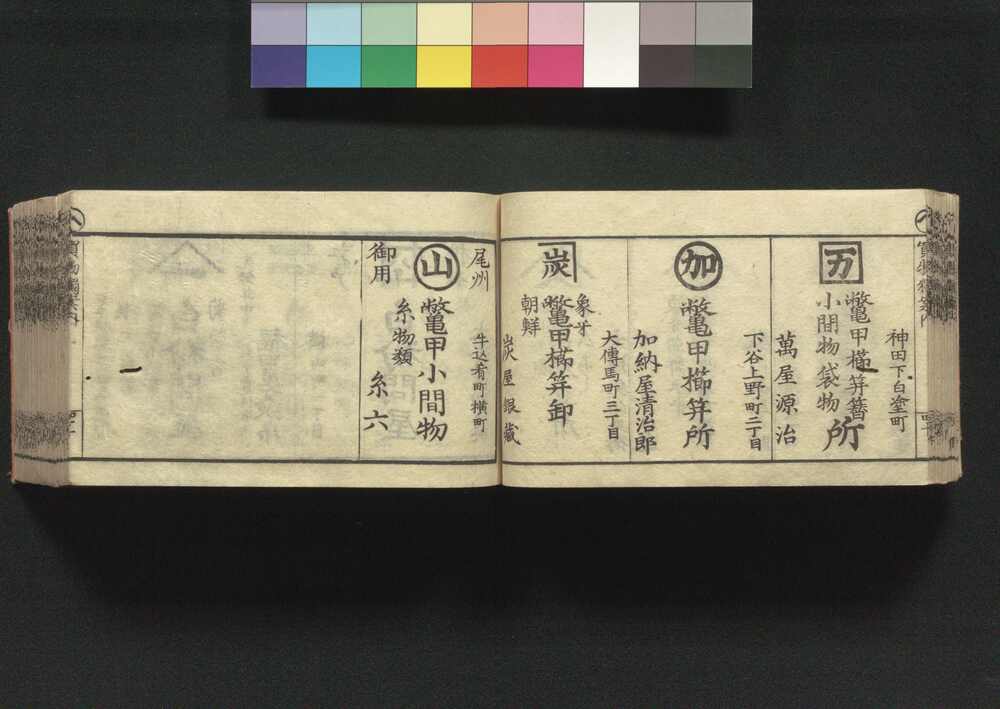 神田下白壁町
万
鼈甲櫛笄簪
小間物袋物
所
萬屋源治
下谷上野町二丁目
加
鼈甲櫛笄所
加納屋清治郎
大傳馬町三丁目
炭
象牙
鼈甲櫛笄卸
朝鮮
炭屋銀藏
尾州
牛込肴町横町
山
鼈甲小間物
御用
糸物類
糸六